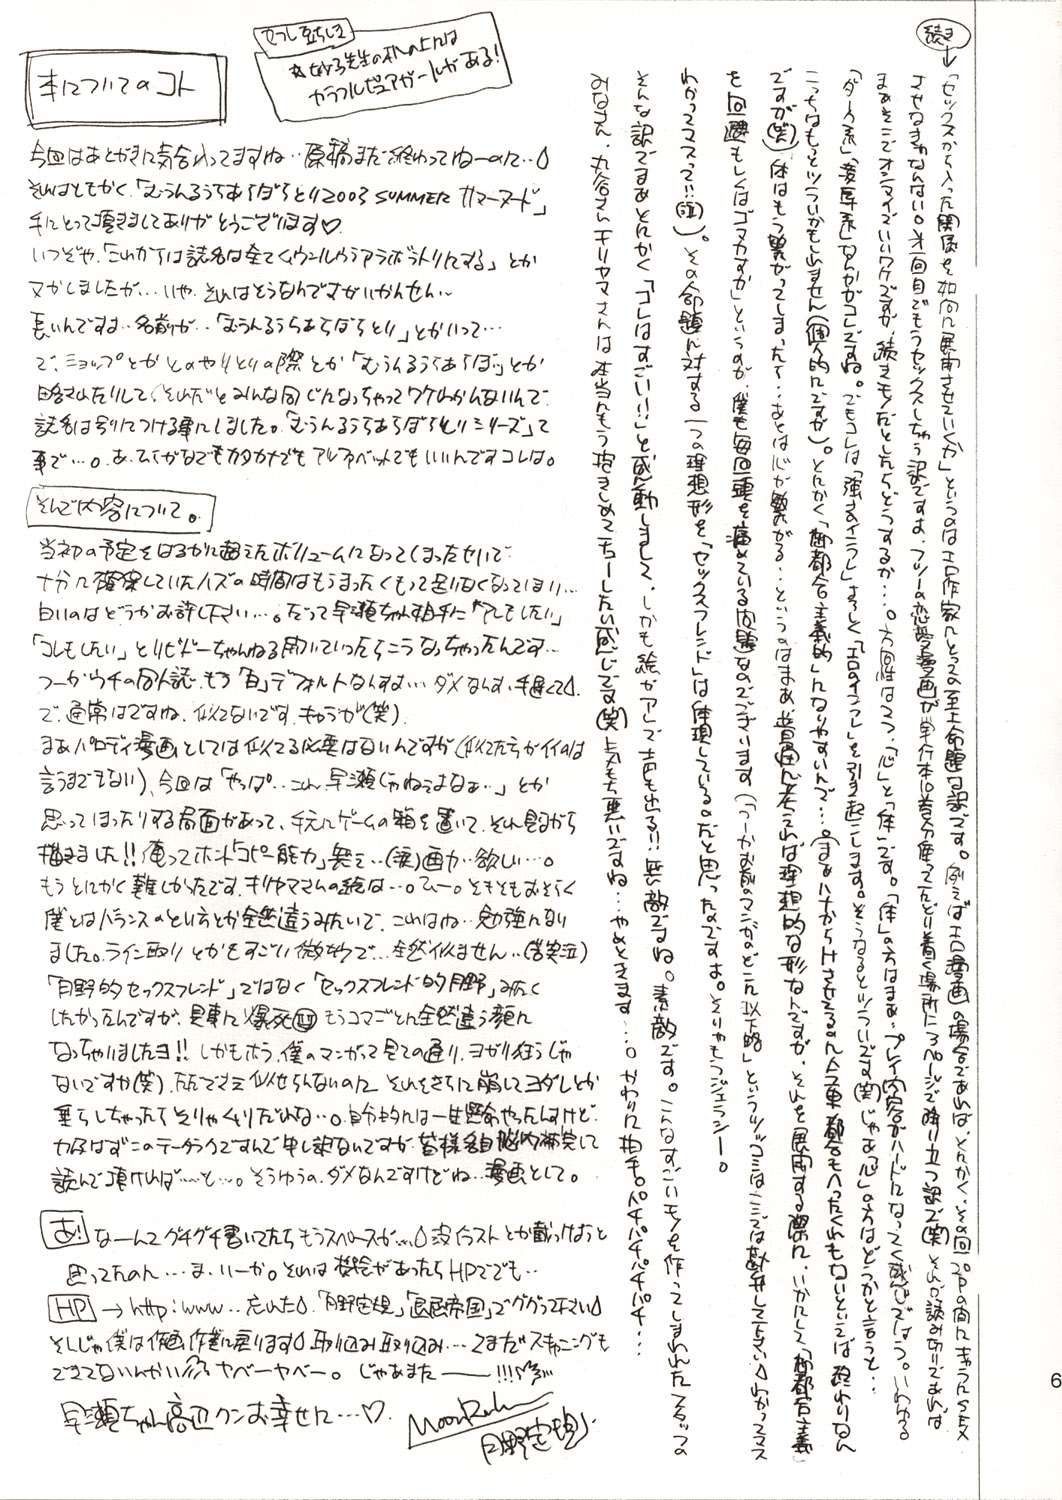 続き
「セックスから入った関係を如何に展開させていくか」というのはエロ作家にとって至上命題な訳です。例えばエロ漫画の場合であれば、とにかく、その回20Pの間にキャラにSEX
させなきゃなんない。オー回目でもうセックスしちゃう訳ですよ、フツーの恋愛漫画が単行本10巻分使ってたどり着く場所に3ページで降り立つ訳で(笑)それが読み切りであれば
まぁそこでオシマイでいいワケですが、続きモノだとしたらどうするか…。方向性は2つ、「心」と「体」です。「体」の方はまぁ、プレイ内容がハードになってく感じでしょう。いわゆる
「ダーク系」「凌辱系」なんかがコレですね。でもコレは「強さのインフレ」よろしく「エロのインフレ」を引き起こします。そうなるとツライです(笑)じゃあ「心」の方はどうかと言うと…
こっちはもっとツライかもしれません(個人的にですが)。とにかく「御都合主義的」になりやすいんで…。(まぁハナからHさせてる
ですが(笑))体はもう繋がってしまったて…あとは心が繋がる…というのはまぁ、普通に考えれば理想的な形なんですが、それを展開する際に、いかにして「御都合主義」
を回避もしくはゴマカすか」というのが、僕も毎回頭を痛めている問題なのでございます(「つーかお前のマンガのどこが以下略」というツッコミはここでは勘弁して下さい わかってマス
わかってマスって!!(泣))。その命題に対する一つの理想形を「セックスフレンド」は体現している。だと思ったのですよ。そりゃもうジェラシー。
そんな訳でまぁとにかく「コレはすごい!!」と感動しまして、しかも絵がアレで声も出る!!無敵ですね。素敵です。こんなすごいモノを作ってしまわれたスタッフの
みなさん、丸谷さんキリヤマさんは本当にもう抱きしめてチューしたい感じです(笑)気もち悪いですね…やめときます…。かわりに拍手。パチパチパチパチ…
本についてのコト
今回はあとがきに気合入ってますね…原稿まだ終わってねーのに…
それはともかく、「むぅんるぅらあらばらとり2003 SUMMER サマーヌード」
手にとって頂きましてありがとうございます♡
いつぞや、「これからは誌名は全てムゥンルゥラアラボラトリにする」とか
ヌかしましたが…いや、それはそうなんですがいかんせん〜
長いんですよ…名前が…「むぅんるぅらあらばらとり」とかいって…
で、ショップとかとのやりとりの際とか「むぅんるぅらあらぼ」とか
略されたりして、それだとみんな同じになっちゃってワケわかんないんで
誌名は別につける事にしました。「むぅんるぅらあらばらとりシリーズ」て
事で…。あ、ひらがなでもカタカナでもアルファベットでもいいんですコレは。
そんで内容について。
当初の予定をはるかに超えたボリュームになってしまったせいで
十分に確保していたハズの時間はもうまったくもって足りなくなってしまい…
白いのはどうかお許し下さい…。だって早瀬ちゃん相手に「アレもしたい」
「コレもしたい」とリビドーちゃんねる開いていったらこうなっちゃったんです…
つーかウチの同人誌、もう「白」デフォルトなんすよ…ダメなんす、手遅くて。
で、通常はですね、似てないです、キャラが(笑)
まぁパロディ漫画としては似てる必要はないんですが(似てた方がイイのは
言うまでもない)、今回は「やっぱ…こんな早瀬じゃねぇよなぁ…」とか
思ってしまったりする局面があって、手元にゲームの箱を置いて、それ見ながら
描きました!!俺ってホント「コピー能力」無え…(涙)画力…欲しい…。
もうとにかく難しかったです、キリヤマさんの絵は…。ひー。そもそもおそらく
僕とはバランスのとり方とか全然違うみたいで、これはね…勉強になり
ました。ライン取りとかもすごい微妙で…全然似ません…(苦笑泣)
「月野的セックスフレンド」ではなく「セックスフレンド的月野」みたく
したかったんですが、見事に爆死(泣)もうコマごとに全然違う顔に
なっちゃいましたヨ!!しかもホラ、僕のマンガって見ての通り、ヨガり狂うじゃ
ないですか(笑)ただでさえ似せらんないのに それをさらに崩してヨダレとか
垂らしちゃったらそりゃムリだわな…。自分的には一生懸命やったんすけど、
力及ばずこのテータラクですんで申し訳ないですが、皆様各自脳内補完して
読んで頂ければ……と…。そうゆうの、ダメなんですけどね…漫画として。
あ! なーんてグチグチ書いてたらもうスペースが… 没イラストとか載っけようと
思ってたのに…ま、いーか。それは機会があったらHPででも…
HP → http:www…忘れた 「月野定規」「退屈帝国」でググって下さい
そしじゃ僕は作画作業に戻ります 取り込み取り込み… てまだスキャニングも
できてないんかい ヤベーヤベー。じゃあまたーーー!!!
早瀬ちゃん高辺クンお幸せに…♡
MoonRuler
月野定規